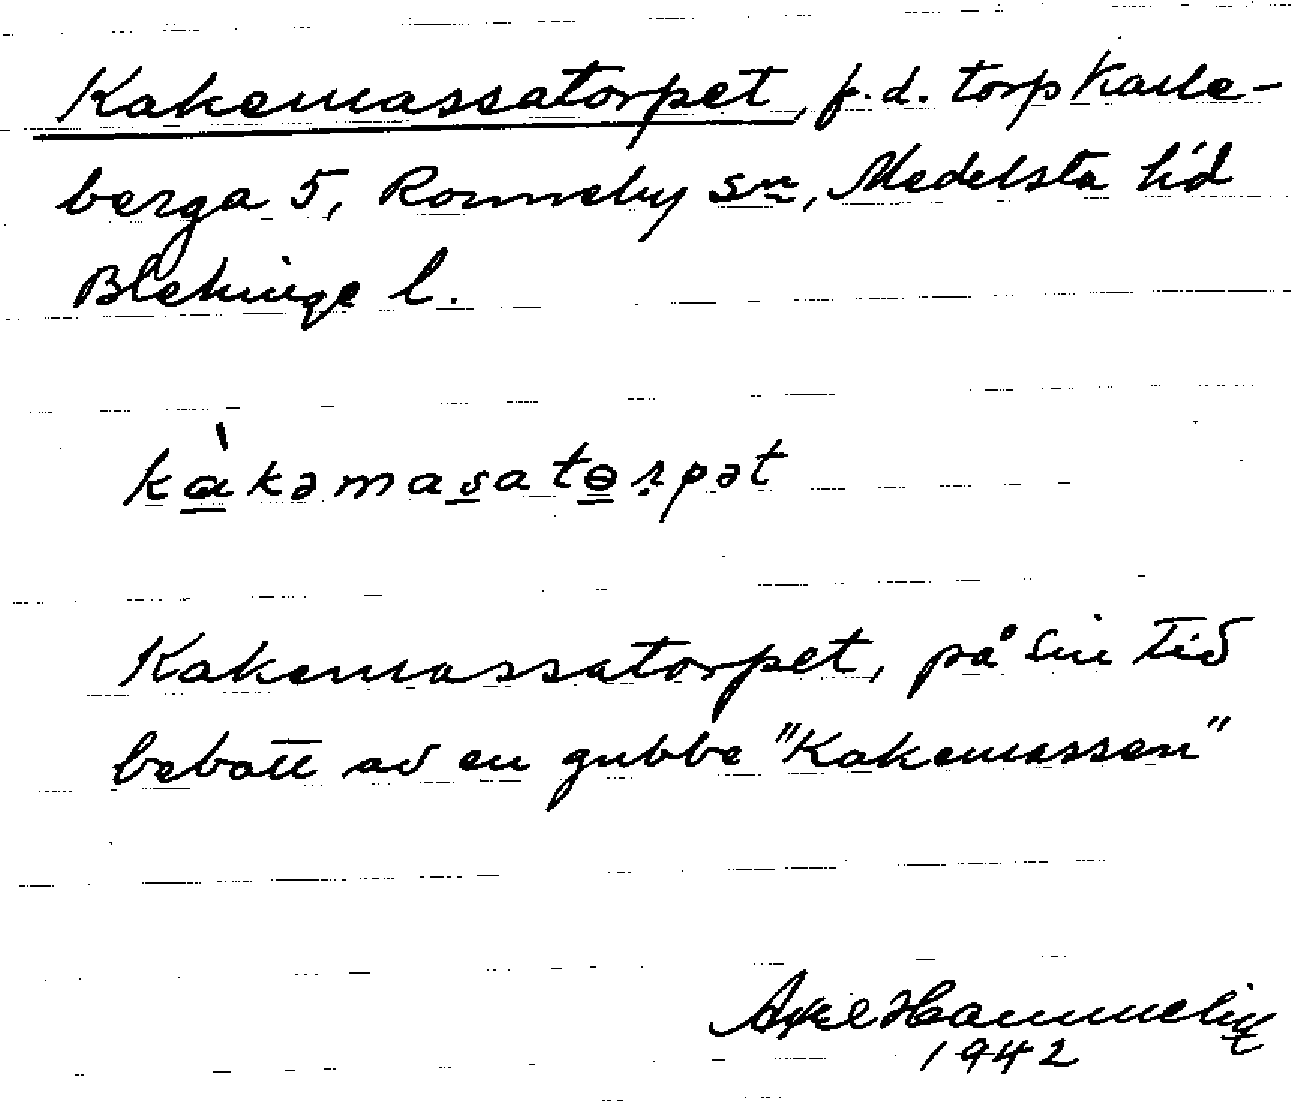 Kakemassatorpet, f.d. torp Karle-
berga 5, Ronneby sn, Medelsta hd
Blekinge l.
kàkəmasatɵrpət
Kakemassatorpet, på sin tid
bebott av en gubbe "Kakemassen"
Axel
1942